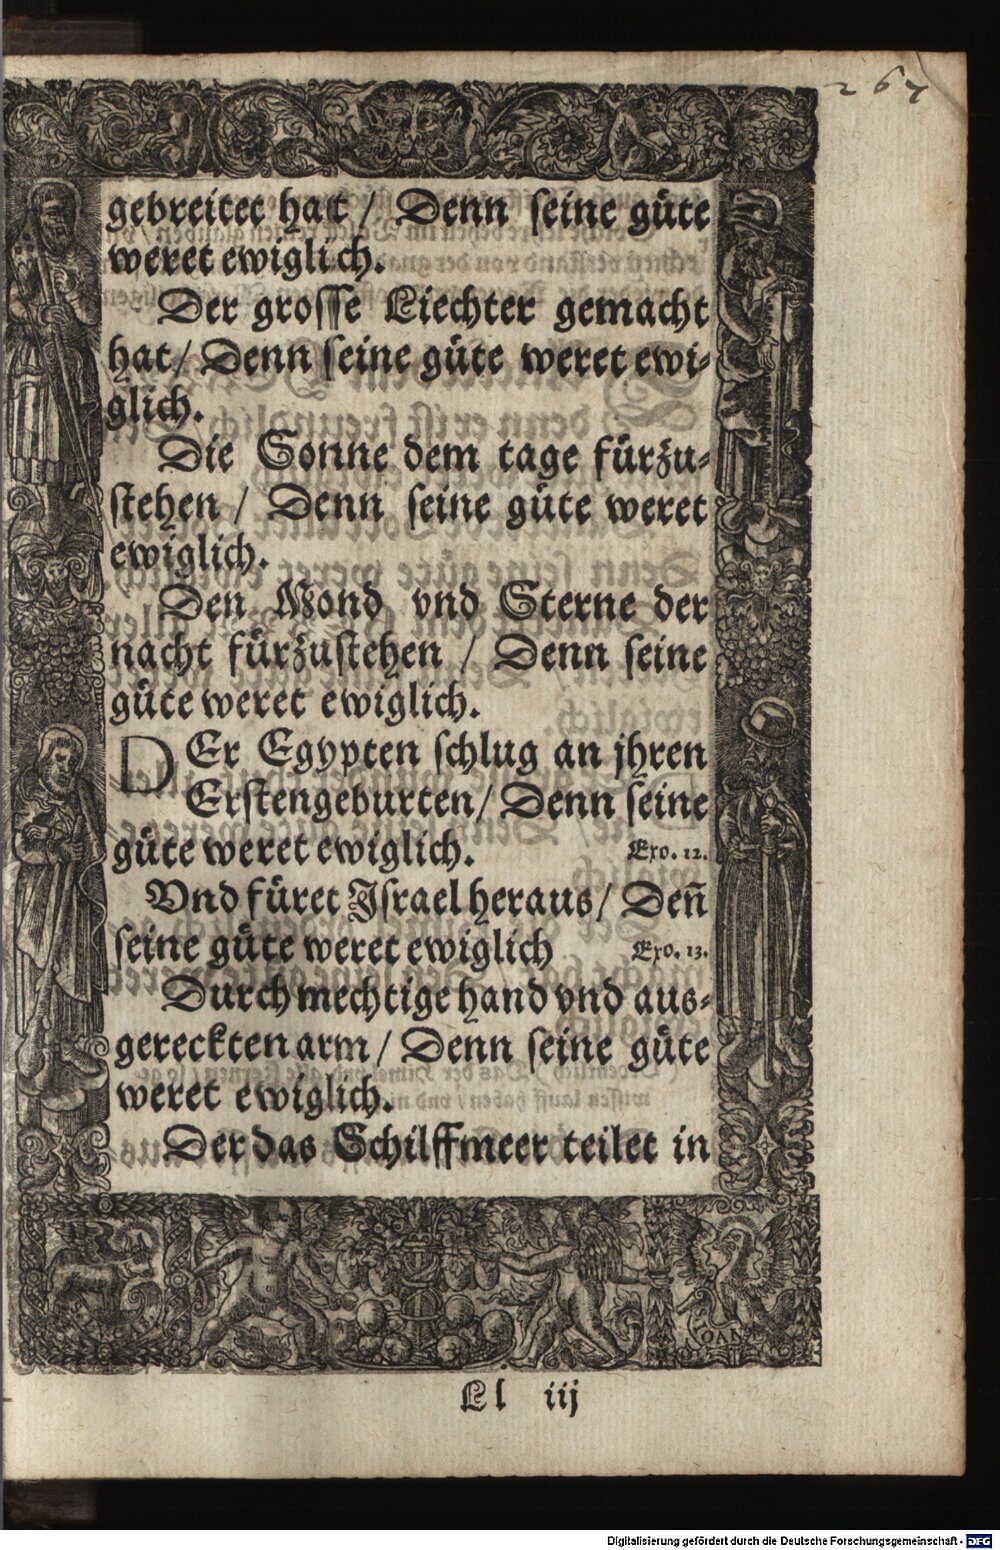 267
gebreitet hatt / Denn ſeine güte
weret ewiglich.
Der groſſe Liechter gemacht
hat / Denn ſeine güte weret ewi-
glich.
Die Sonne dem tage fürzu-
ſtehen / Denn ſeine güte weret
ewiglich.
Den Mond vnd Sterne der
nacht fürzuſtehen / Denn ſeine
güte weret ewiglich.
DEr Egypten ſchlug an jhren
Erſtengeburten / Denn ſeine
güte weret ewiglich. Exo. 12.
Vnd füret Jſrael heraus / Deñ
ſeine güte weret ewiglich Exo. 13.
Durch mechtige hand vnd aus-
gereckten arm / Denn ſeine güte
weret ewiglich.
Der das Schilffmeer teilet in
Ll iij
Digitalisierung gefördert durch die Deutsche Forschungsgemeinschaft - DFG